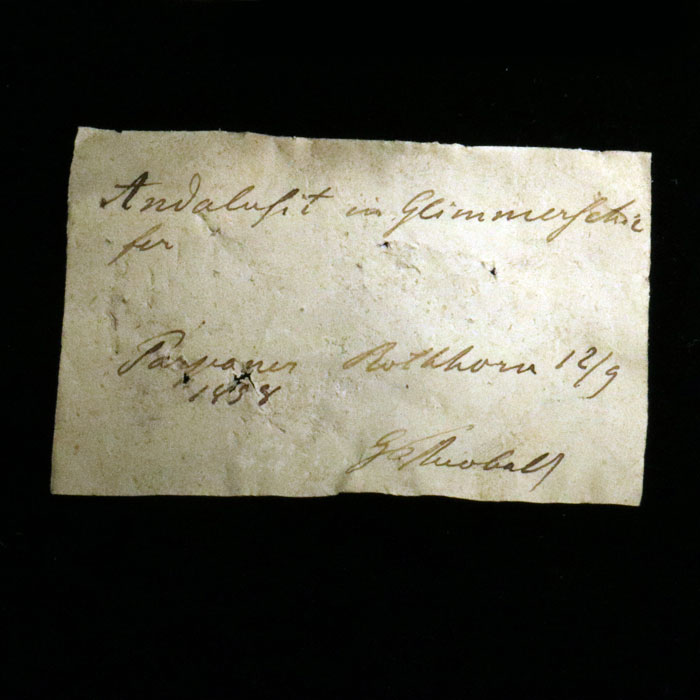 Andalusit in Glimmerschie
fer
Parpaner Rothhorn 12/9
1858
G Theobald